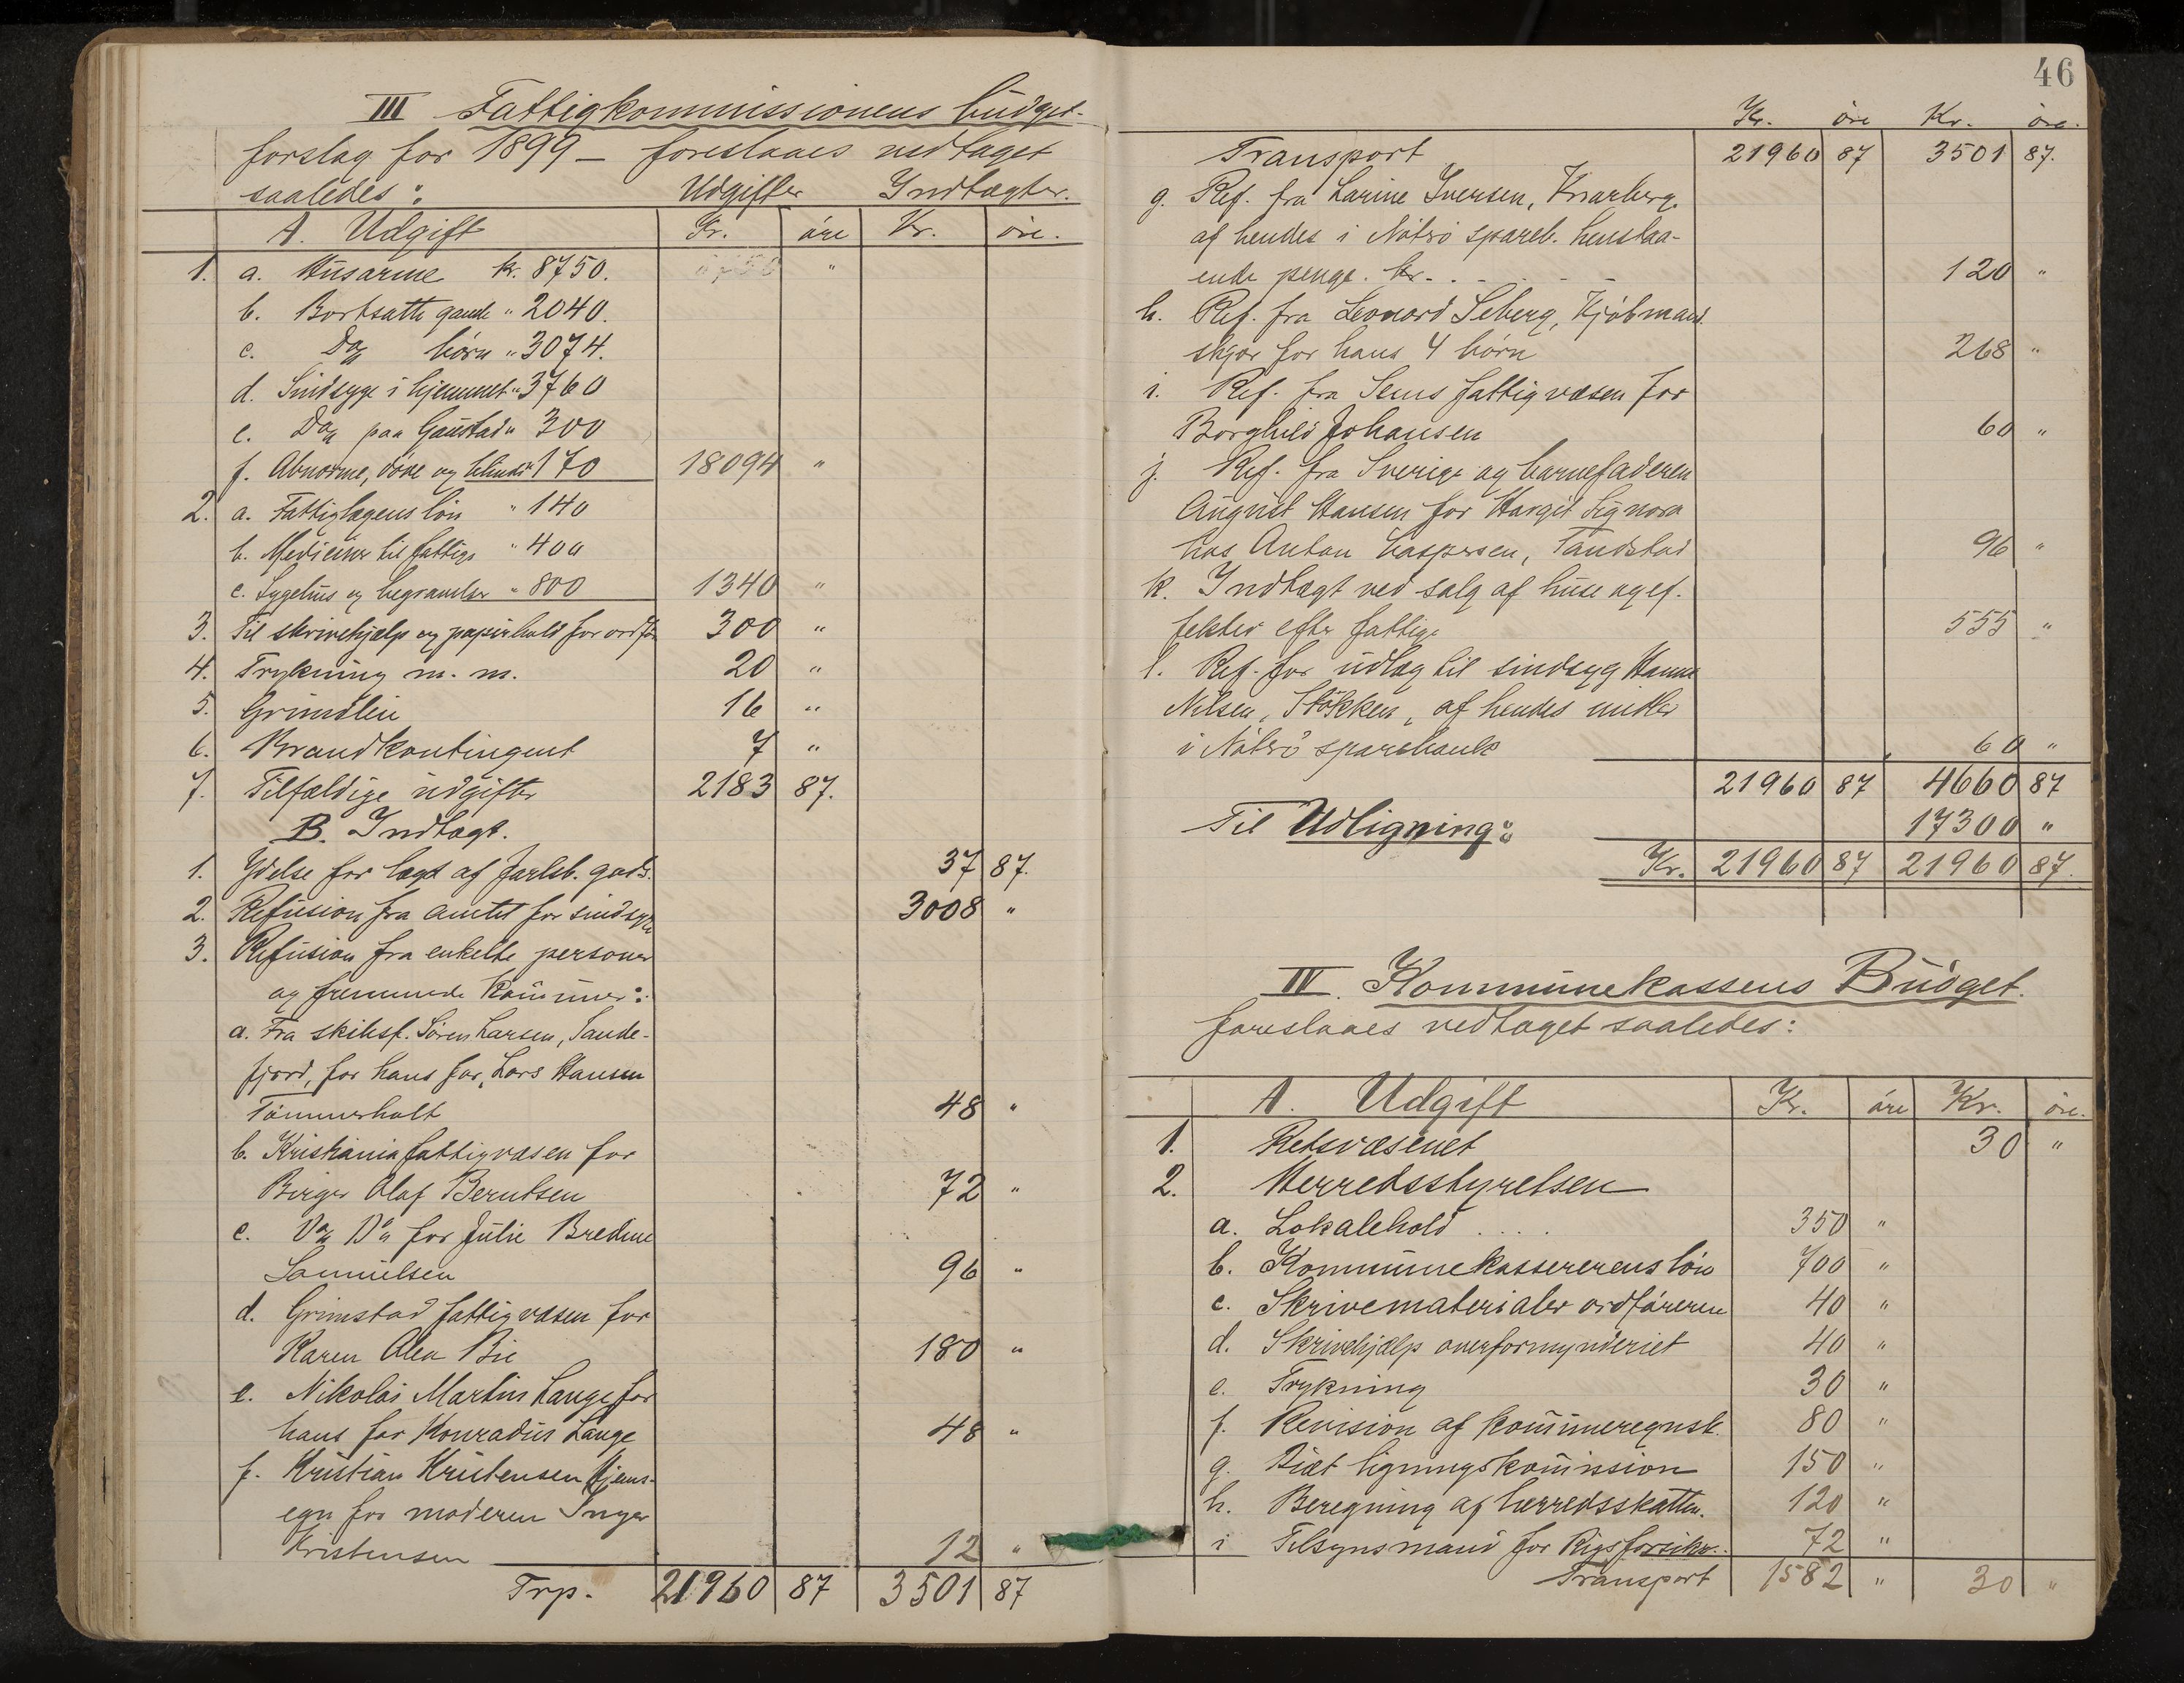 III Fattigkommissionens budget-
forslag for 1899 — foreslaaes vedtaget
saaledes: Udgifter Indtægter.
A. Udgift Kr. öre Kr. öre.
1. a. Husarme kr. 8750. "
b. Bortsatte gamle " 2040.
c. Do börn " 3074.
d. Sindsyge i hjemmet " 3760
e. Do paa Gaustad " 300
f. Abnorme, döve og blinde " 170 18094 "
2. a. Fattiglægens lön " 140
b. Mediciner til fattige " 400
c. Sygehus og begravelser " 800 1340 "
3. Til skrivehjælp og papirhold for ordf 300 "
4. Trykning m. m. 20 "
5. Grundleie 16 "
6. Brandkontingent 7 "
7. Tilfældige udgifter 2183 87.
B. Indtægt.
1. Ydelse for lægd af Jarlsb. gods. 37 87.
2. Refusion fra amtet for sindsyge 3008 "
3. Refusion fra enkelte personer
og fremmede kommuner:
a. Fra skibsf. Sören Larsen, Sande-
fjord, for hans far, Lars Hansen
Tömmerholt 48 "
b. Kristiania fattigvæsen for
Birger Olaf Berntsen 72 "
c. Do Do for Julie Bredine
Samuelsen 96 "
d. Grimstad fattigvæsen for
Karen Alea Bie 180 "
e. Nikolai Martin Lange for
hans far Konradus Lange 48 "
f. Kristian Kristensen Hjems-
egn for moderen Inger
Kristensen 12 "
Trp. 21960 87 3501 87
46
Kr. öre Kr. öre.
Transport 21960 87 3501 87.
g. Ref. fra Larine Iversen, Knarberg,
af hendes i Nöterö spareb. henstaa-
ende penge. kr. 120 "
h. Ref. fra Leonard Seberg, Kjöbmand
skjær for hans 4 börn 268 "
i. Ref. fra Sems fattigvæsen for
Borghild Johansen 60 "
j. Ref. fra Sverige og barnefaderen
August Hansen for Margit Signora
hos Anton Kaspersen, Tandstad 96 "
k. Indtægt ved salg af huse og ef-
fekter efter fattige 555 "
l. Ref. for udlæg til sindsyg Hanna
Nilsen, Stokken, af hendes midler
i Nöterö sparebank 60 "
21960 87 4660 87
Til Udligning: 17300 "
Kr. 21960 87 21960 87.
IV. Kommunekassens Budget.
foreslaaes vedtaget saaledes:
A. Udgift Kr. öre Kr. öre.
1. Retsvæsenet 30 "
2. Herredsstyrelsen
a. Lokalehold . . . . 350 "
b. Kommunekassererens lön 700 "
c. Skrivematerialer ordföreren 40 "
d. Skrivehjælp overformynderiet 40 "
e. Trykning 30 "
f. Revision af kommuneregnsk. 80 "
g. Diæt ligningskommission 150 "
h. Beregning af herredsskatten. 120 "
i Tilsynsmand for Rigsforsikr. 72 "
Transport 1582 " 30 "